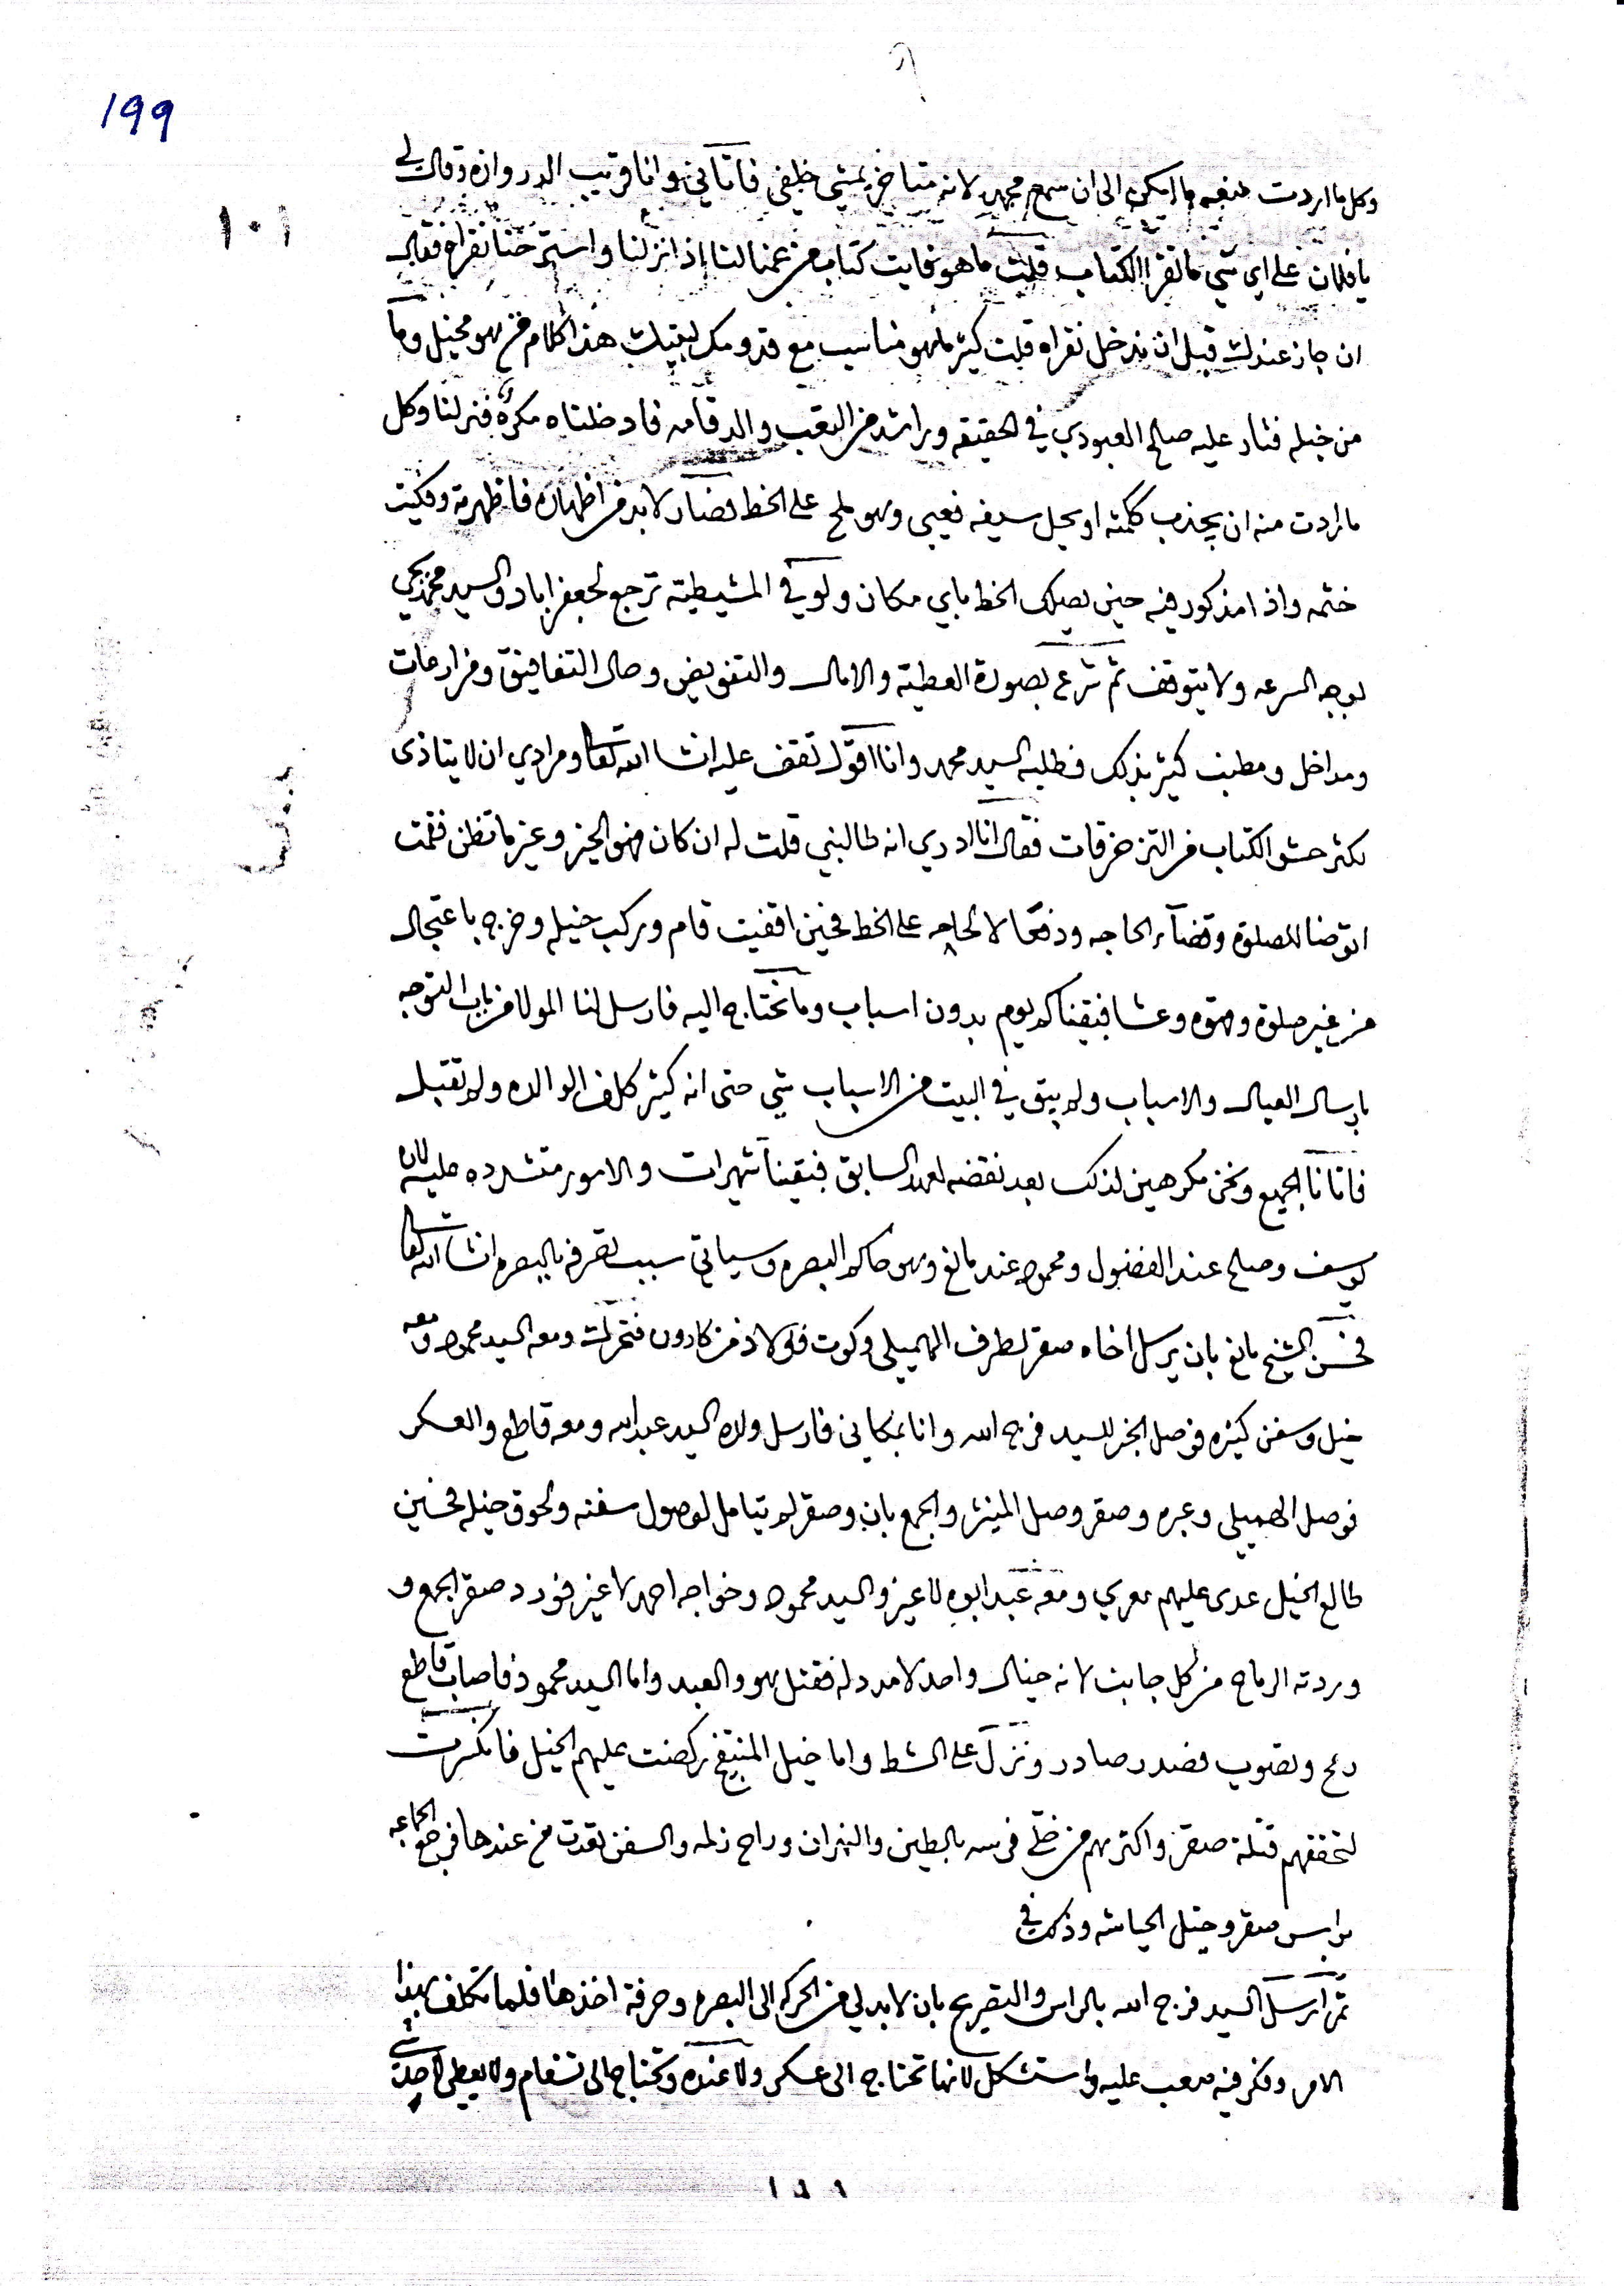 ١٩٩
١٠١
وكل ما اردت منعه ما امكن الى ان سمع محمد لانه متاخر يمشي خلفي فاتاني وانا قريب الدروازه وقال لي
يا فلان على اي شي ما تقرا الكتاب قلت ما هو فايت كتاب من عمنا لنا اذا نزلنا واسترحنا نقراه فقال
ان جاز عندك قبل ان ندخل نقراه قلت كثير ما هو مناسب مع قدومك لبيتك هذا الكلام من هو مخيل وما
من خيله فثار عليه صالح العبودي في الحقيقه وراشد من التعب والدقامه فادخلناه مكره فنزلنا وكل
ما اردت منه ان يجذب كلمته او يحل سيفه فعيي وهو ملح على الخط فصار لا بد من اظهاره فاظهرته وفكيت
ختمه واذا مذكور فيه حين يصلك الخط باي مكان ولو في المشيطيه ترجع لجعفر اباد والسيد محمد يجي
بوجه السرعه ولا يتوقف ثم شرع بصورة العطية والامال والتفويض وحال التفافيق ومزارعات
ومداخل ومطنب كثير بذلك فطلبه السيد محمد وانا اقول تقف عليه انشا الله تعالى ومرادي ان لا يتاذى
لكثر حشو الكتاب من التزخرقات فقال انا ادري انه طالبني قلت له ان كان فهو الخير وغير ما تظن فقمت
اتوضا للصلوة وقضآء الحاجه ودفعا لالحاحه على الخط فحين اقفيت قام وركب خيله وخرج باعتجال
من غير صلوة وقهوه وعشا فبقينا كم يوم بدون اسباب وما نحتاج اليه فارسل لنا المولا من باب التوجه
بارسال العيال والاسباب ولم يبق في البيت من الاسباب شي حتى انه كثير كلف الوالده ولم تقبل
فاتانا الجميع ونحن مكرهين لذلك بعد نقضه لعهد السابق فبقينا شهرات والامور متشرده عليه لان
يوسف وصلح عند الفضول ومحمود عند مانع وهو حاكم البصره وسياتي سبب تصرفه بالبصره انشا الله تعالى
فحسن الشيخ مانع بان يرسل اخاه صقر لطرف الهميلي وكوت فولاذ من كارون فتحرك ومعه السيد محمود ومعه
خيل وسفن كثيره فوصل الخبر للسيد فرج الله وانا بمكاني فارسل ولده السيد عبدالله ومعه قاطع والعسكر
فوصل الهميلي وعبره وصقر وصل المنيثر والجمع بان وصقر لم يتامل لوصول سفنه ولحوق خيله فحسين
طالع الخيل عدى عليهم معربي ومعه عبد ابوه لا غير والسيد محمود وخواجه احمد لا غير فورد صقر الجمع و
وردته الرماح من كل جانب لانه خيال واحد لا مدد له فقتل هو والعبد واما السيد محمود فاصاب قاطع
رمح وتصويب فصدر صادر ونزل على الشط واما خيل المنتفج ركضت عليهم الخيل فانكسرت
لتحققهم قتلة صقر واكثرهم من خلى فرسه بالطين والنهران وراح زلمه والسفن بعدت من عندها فرجع الجماعه
براس صقر وخيل الحياشه وذلك في
ثم ارسل السيد فرج الله بالراس والتصريح بان لا بد لي من الحركه الى البصره وحرفة اخذها فلما تكلف بهذا
الامر وفكر فيه صعب عليه واستشكل لانها تحتاج الى عسكر ولا عنده وتحتاج الى تنعام ولا يعطي لاحد شي